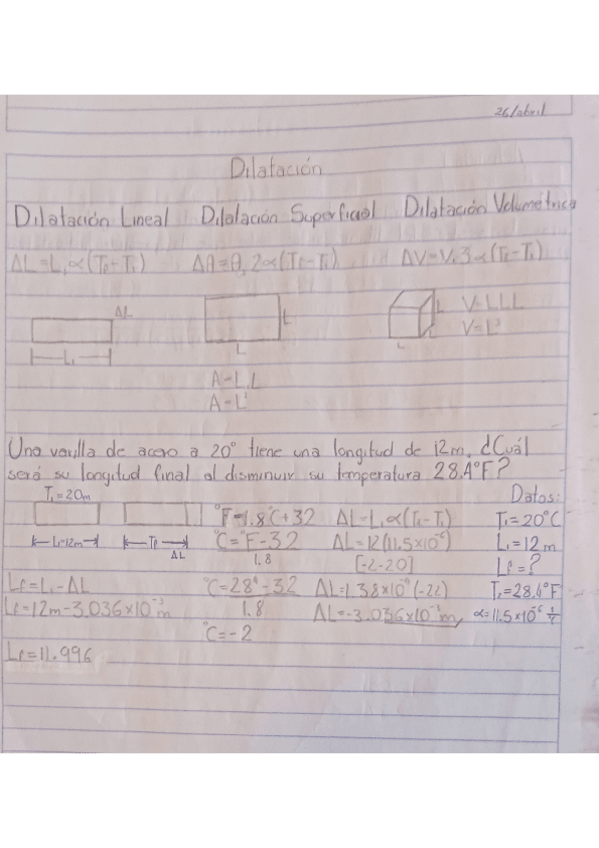 26/abril
Dilatación
Dilatación Lineal Dilatación Superficial Dilatación Volumétrica
ΔL=L₁∝(Tf-T₁) ΔA=A₁2∝(Tf-T₁) ΔV=V₁3∝(Tf-T₁)
ΔL
L₁
L
L
L
L
V=LLL
V=L³
A=L.L
A=L²
Una varilla de acero a 20° tiene una longitud de 12m. ¿Cuál
será su longitud final al disminuir su temperatura 28.4°F?
T₁=20m Datos:
°F=1.8°C+32 ΔL=L₁∝(Tf-T₁) T₁=20°C
L₁=12m Tf °C=°F-32 ΔL=12(11.5x10⁻⁶) L₁=12m
ΔL 1.8 [-2-20] Lf=?
Lf=L₁-ΔL °C=28⁴-32 ΔL=1.38x10⁻⁴(-22) T₂=28.4°F
Lf=12m-3.036x10⁻³m 1.8 ΔL=-3.036x10⁻³m, ∝=11.5x10⁻⁶
°C=-2
Lf=11.996